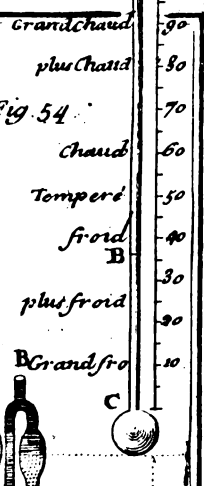 Grandchaud 90
plus Chaud 80
Fig. 54 70
Chaud 60
Temperé 50
froid 40
B
30
plus froid
20
B Grand fro 10
C